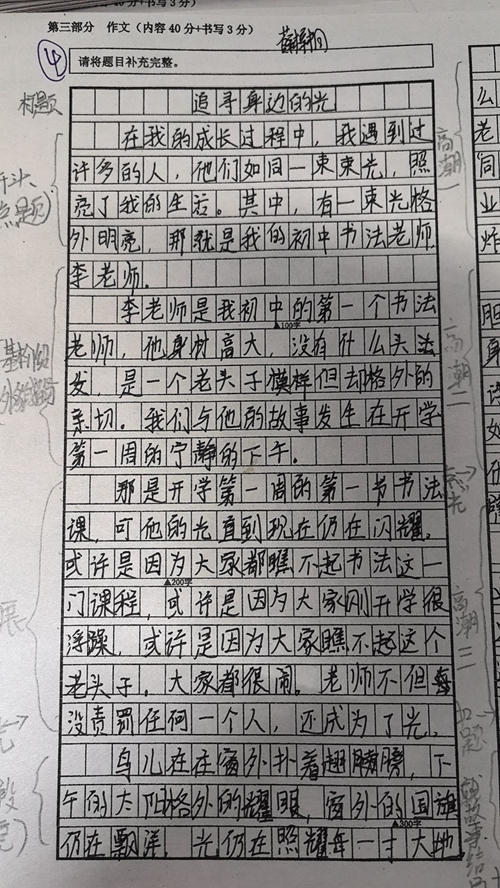 第三部分 作文（内容40分+书写3分）
请将题目补充完整。
标题
追寻身边的光
在我的成长过程中，我遇到过
许多的人，他们如同一束束光，照
亮了我的生活。其中，有一束光格
外明亮，那就是我的初中书法老师
李老师.
李老师是我初中的第一个书法
▲100字
老师，他身材高大，没有什么头法
发，是一个老头子模样但却格外的
亲切。我们与他的故事发生在开学
第一周的宁静的下午。
那是开学第一周的第一节书法
课，可他的光直到现在仍在闪耀。
或许是因为大家都瞧不起书法这一
▲200字
门课程，或许是因为大家刚开学很
浮躁，或许是因为大家瞧不起这个
老头子，大家都很闹。老师不但每
没责罚任何一个人，还成为了光，
鸟儿在在窗外扑着翅膀，下
午的太阳格外的耀眼，窗外的国旗
▲300字
仍在飘洋，光仍在照耀每一寸大地
高潮一
高潮二
高潮三
点题